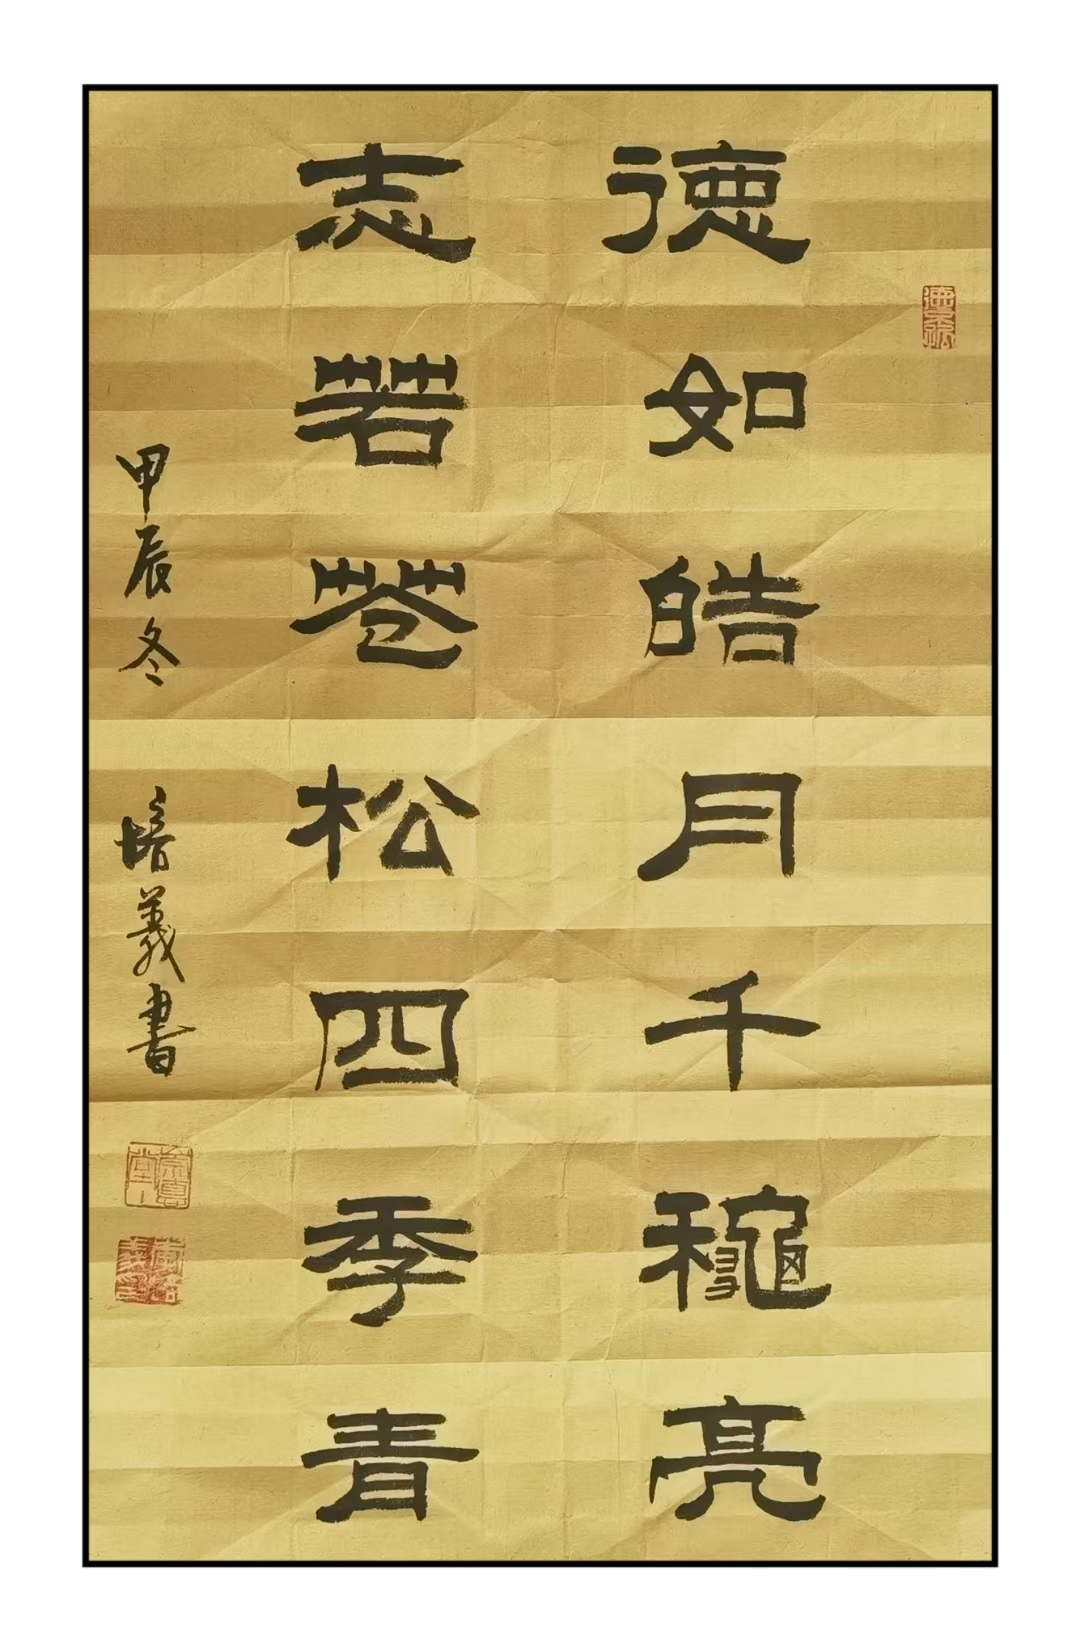 德如皓月千龝亮
志若苍松四季青
甲辰冬 培義書